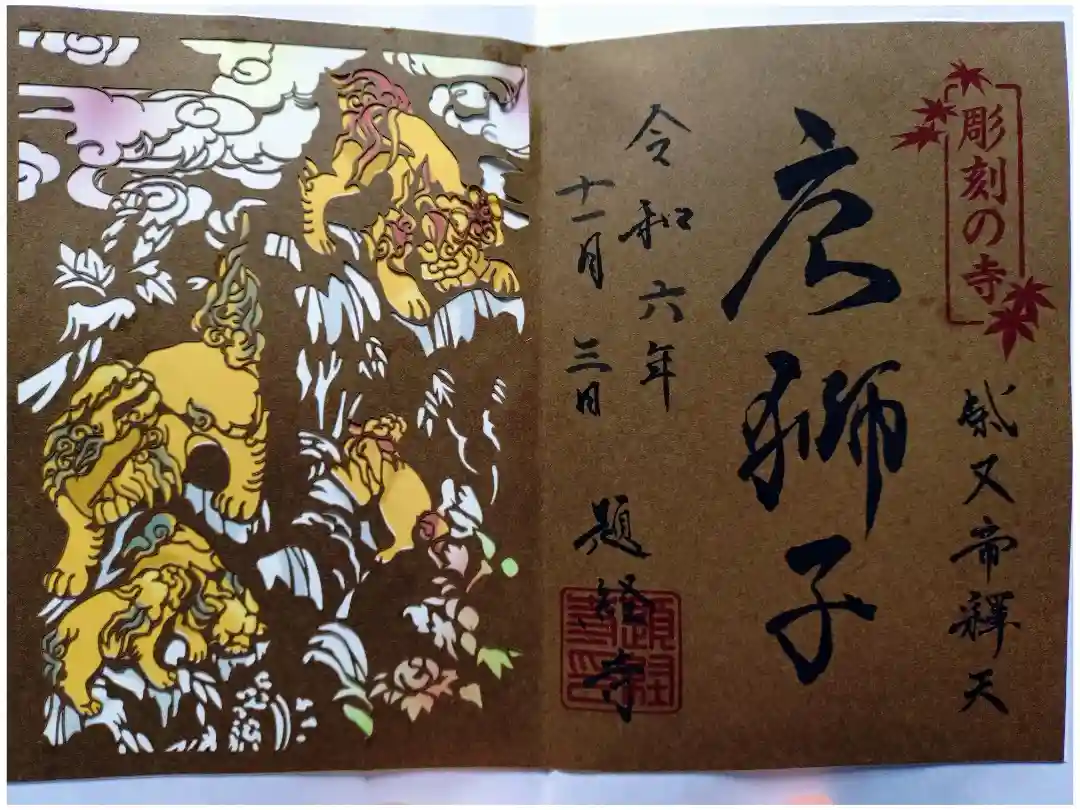 彫刻の寺
柴又帝釋天
唐獅子
令和六年
十一月三日
題経寺
題経寺印